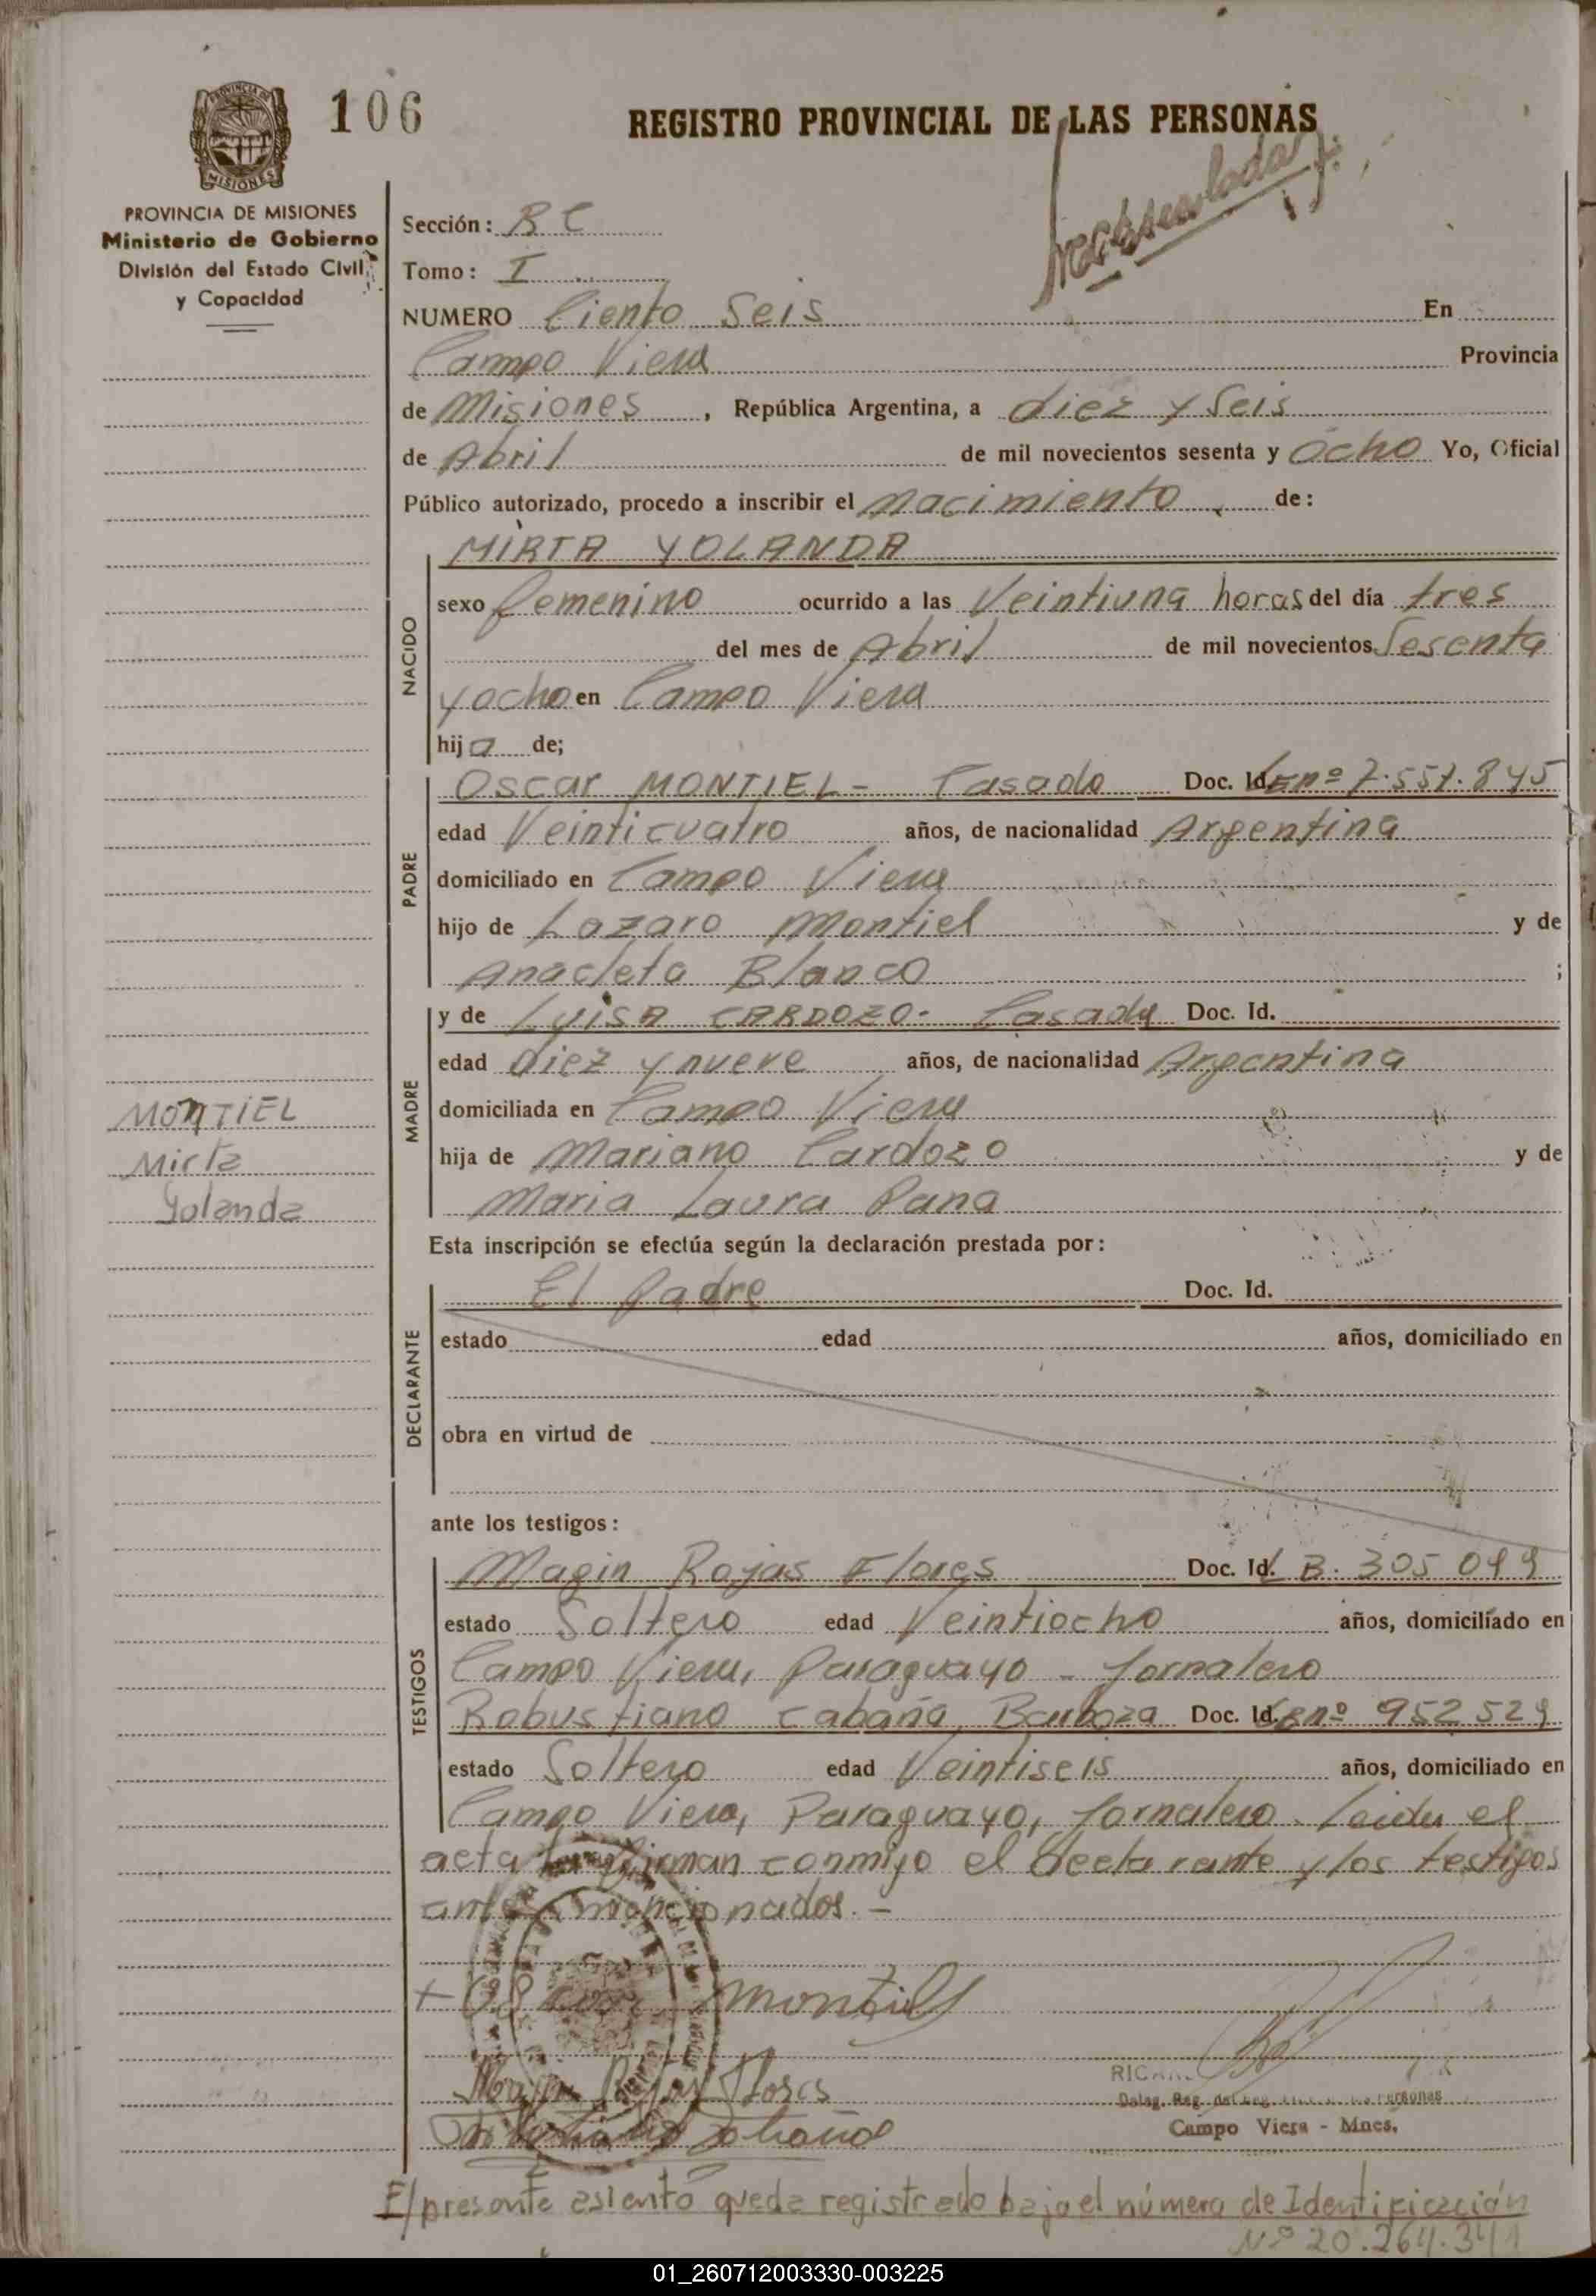 106
REGISTRO PROVINCIAL DE LAS PERSONAS
PROVINCIA DE MISIONES
Ministerio de Gobierno
División del Estado Civil
y Capacidad
Sección: R C
Tomo: I
NUMERO Ciento Seis En
Campo Viera Provincia
de Misiones, República Argentina, a diez y Seis
de Abril de mil novecientos sesenta y Ocho Yo, Oficial
Público autorizado, procedo a inscribir el nacimiento de:
NACIDO
MIRTA YOLANDA
sexo femenino ocurrido a las Veintiuna horas del día tres
del mes de Abril de mil novecientos Sesenta
y ocho en Campo Viera
hija de;
PADRE
Oscar MONTIEL - Casado Doc. Id. LE nº 7.551.845
edad Veinticuatro años, de nacionalidad Argentina
domiciliado en Campo Viera
hijo de Lazaro Montiel y de
Anacleta Blanco ;
MADRE
y de LUISA CARDOZO - Casada Doc. Id.
edad diez y nueve años, de nacionalidad Argentina
domiciliada en Campo Viera
hija de Mariano Cardozo y de
Maria Laura
MONTIEL
Mirta
Yolanda
Esta inscripción se efectúa según la declaración prestada por:
DECLARANTE
El Padre Doc. Id.
estado edad años, domiciliado en
obra en virtud de
ante los testigos:
TESTIGOS
Magin Rojas Flores Doc. Id. B. 305 049
estado Soltero edad Veintiocho años, domiciliado en
Campo Viera, Paraguayo - Jornalero
Robustiano Cabaña Barboza Doc. Id. nº 952529
estado Soltero edad Veintiseis años, domiciliado en
Campo Viera, Paraguayo, Jornalero. Leida el
acta la firman conmigo el declarante y los testigos
antes mencionados. -
Oscar Montiel
Magin Rojas Flores
Cabaña
Campo Viera - Mnes.
El presente asiento queda registrado bajo el número de Identificación
Nº 20.264.341
01_260712003330-003225